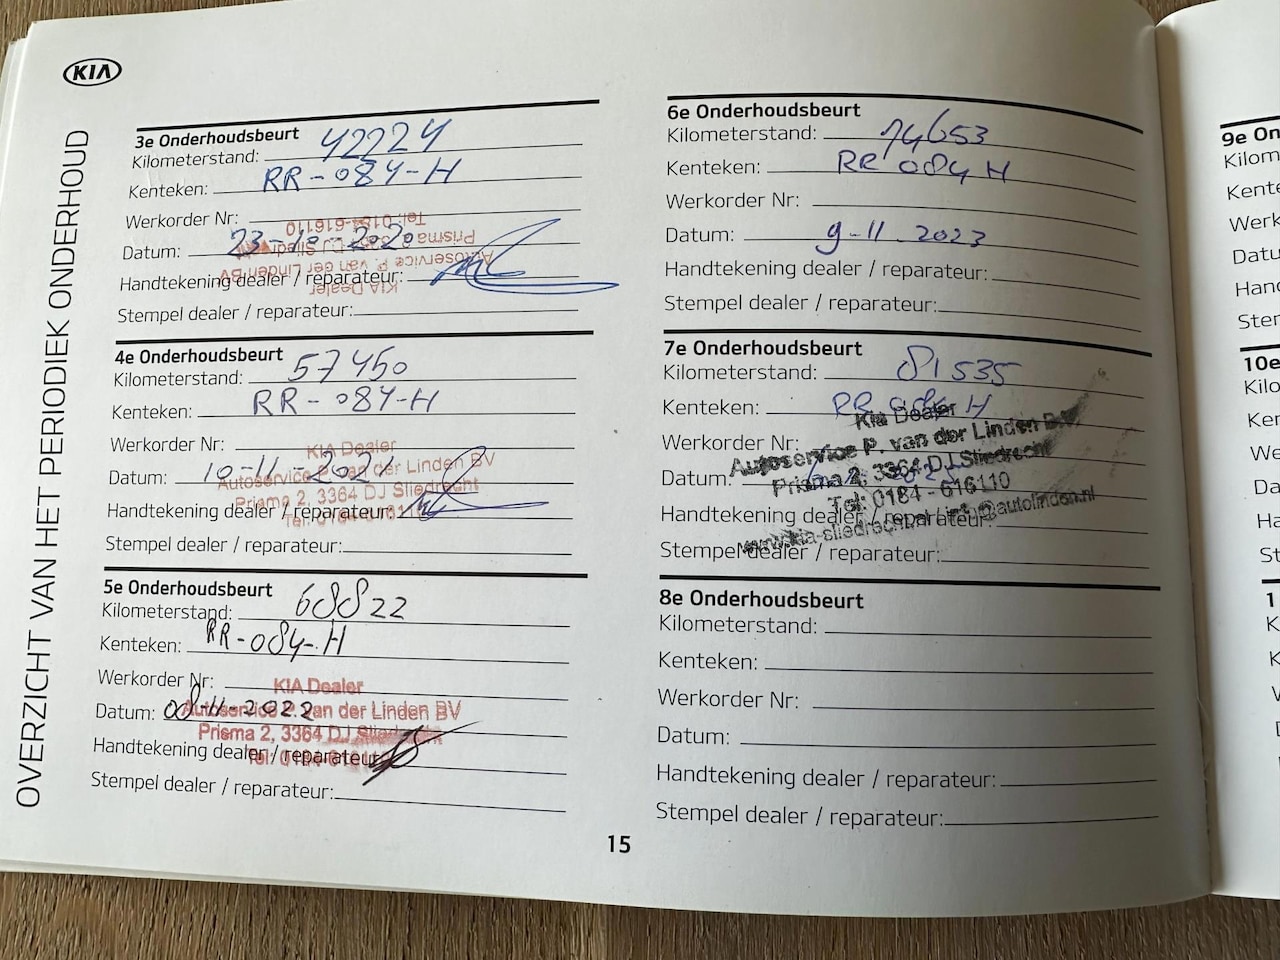 KIA
OVERZICHT VAN HET PERIODIEK ONDERHOUD
3e Onderhoudsbeurt
Kilometerstand: 42224
Kenteken: RR-084-H
Werkorder Nr:
Datum: 23-10-2020
Handtekening dealer / reparateur:
Stempel dealer / reparateur:
KIA Dealer
Autoservice P. van der Linden BV
Prisma 2, 3364 DJ Sliedrecht
Tel: 0184-616110
4e Onderhoudsbeurt
Kilometerstand: 57450
Kenteken: RR-084-H
Werkorder Nr:
Datum: 10-11-2021
Handtekening dealer / reparateur:
Stempel dealer / reparateur:
KIA Dealer
Autoservice P. van der Linden BV
Prisma 2, 3364 DJ Sliedrecht
Tel: 0184-616110
5e Onderhoudsbeurt
Kilometerstand: 68822
Kenteken: RR-084-H
Werkorder Nr:
Datum: 08-11-2022
Handtekening dealer / reparateur:
Stempel dealer / reparateur:
KIA Dealer
Autoservice P. van der Linden BV
Prisma 2, 3364 DJ Sliedrecht
Tel: 0184-616110
6e Onderhoudsbeurt
Kilometerstand: 74653
Kenteken: RR 084 H
Werkorder Nr:
Datum: 9-11-2023
Handtekening dealer / reparateur:
Stempel dealer / reparateur:
7e Onderhoudsbeurt
Kilometerstand: 81535
Kenteken: RR 084 H
Werkorder Nr:
Datum:
Handtekening dealer / reparateur:
Stempel dealer / reparateur:
Kia Dealer
Autoservice P. van der Linden B.V.
Prisma 2, 3364 DJ Sliedrecht
Tel: 0184 - 616110
www.kia-sliedrecht.nl info@autolinden.nl
8e Onderhoudsbeurt
Kilometerstand:
Kenteken:
Werkorder Nr:
Datum:
Handtekening dealer / reparateur:
Stempel dealer / reparateur:
15
9e On
Kilom
Kente
Werk
Datu
Hand
Stem
10e
Kilo
Ker
We
Da
Ha
St
1
K
K